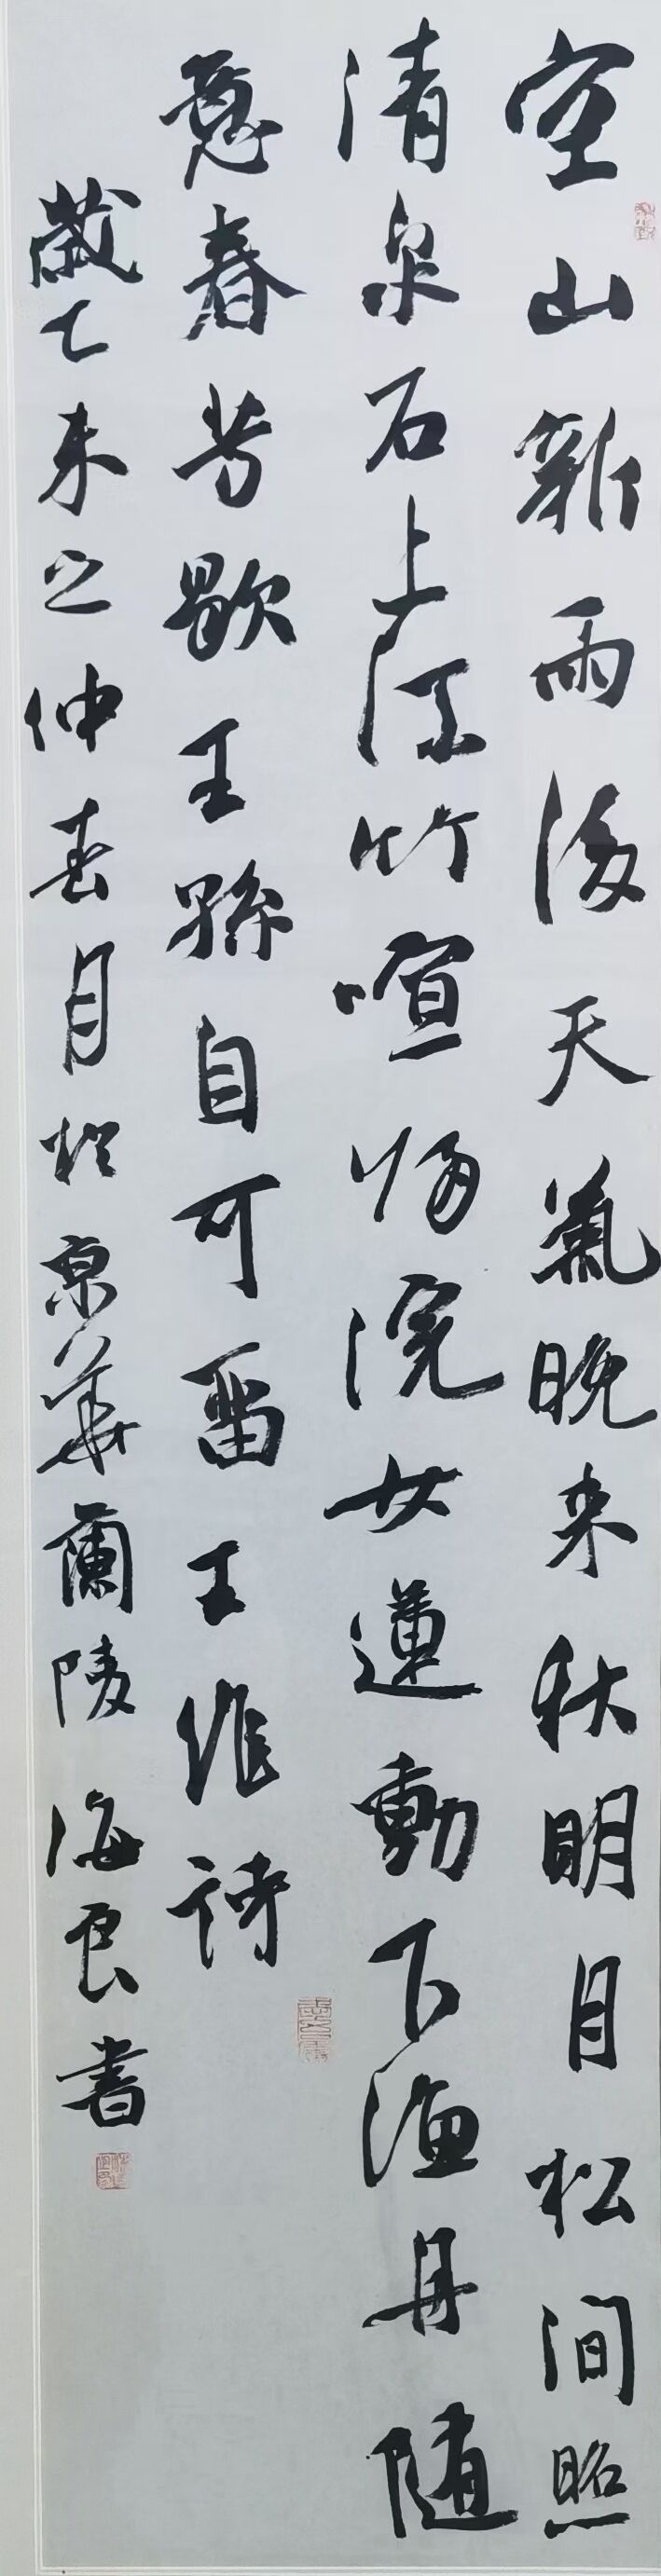 空山新雨後天氣晚来秋明月松間照
清泉石上流竹喧歸浣女蓮動下漁舟随
意春芳歇王孫自可畱王維詩
歲乙未之仲春月於京華蘭陵海良書